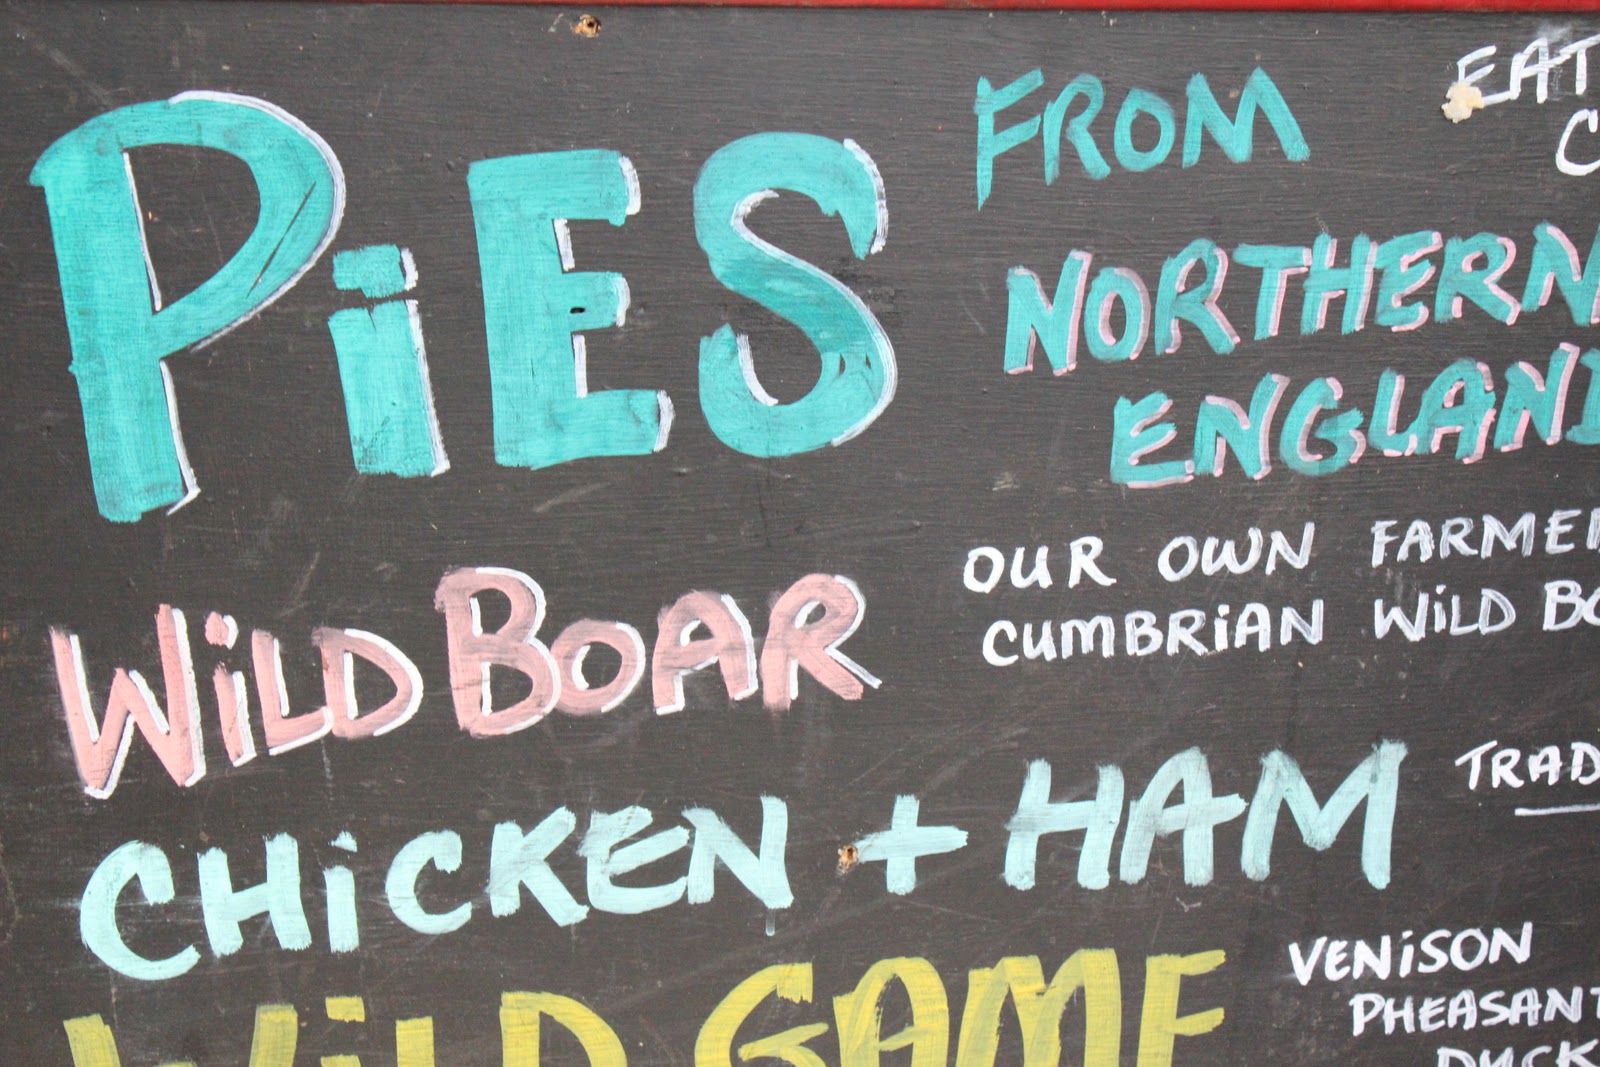 PiES FROM
NORTHERN
ENGLAND
EAT
WiLD BOAR
OUR OWN FARMED
CUMBRiAN WiLD BO
CHiCKEN + HAM
TRAD
WiLD GAME
VENiSON
PHEASANT
DUCK